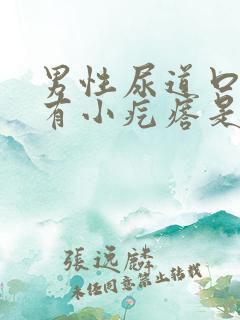 男性尿道口
有小疙瘩是
張远麟
未经同意禁止转载